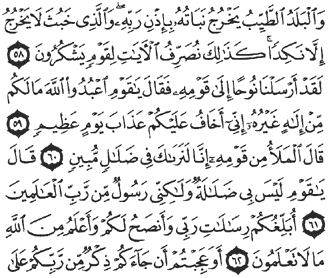 وَالْبَلَدُ الطَّيِّبُ يَخْرُجُ نَبَاتُهُ بِإِذْنِ رَبِّهِ ۖ وَالَّذِي خَبُثَ لَا يَخْرُجُ
إِلَّا نَكِدًا ۚ كَذَٰلِكَ نُصَرِّفُ الْآيَاتِ لِقَوْمٍ يَشْكُرُونَ ٥٨
لَقَدْ أَرْسَلْنَا نُوحًا إِلَىٰ قَوْمِهِ فَقَالَ يَا قَوْمِ اعْبُدُوا اللَّهَ مَا لَكُم
مِّنْ إِلَٰهٍ غَيْرُهُ إِنِّي أَخَافُ عَلَيْكُمْ عَذَابَ يَوْمٍ عَظِيمٍ ٥٩
قَالَ الْمَلَأُ مِن قَوْمِهِ إِنَّا لَنَرَاكَ فِي ضَلَالٍ مُّبِينٍ ٦٠ قَالَ
يَا قَوْمِ لَيْسَ بِي ضَلَالَةٌ وَلَٰكِنِّي رَسُولٌ مِّن رَّبِّ الْعَالَمِينَ
٦١ أُبَلِّغُكُمْ رِسَالَاتِ رَبِّي وَأَنصَحُ لَكُمْ وَأَعْلَمُ مِنَ اللَّهِ
مَا لَا تَعْلَمُونَ ٦٢ أَوَعَجِبْتُمْ أَن جَاءَكُمْ ذِكْرٌ مِّن رَّبِّكُمْ عَلَىٰ